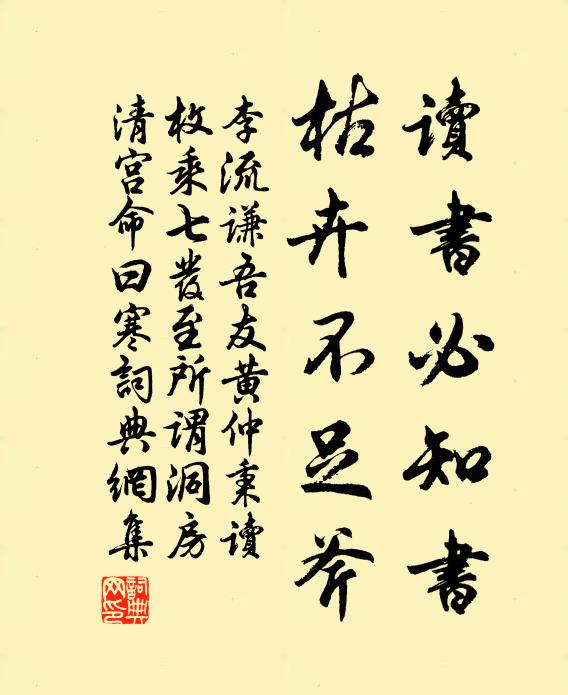 讀書必知書
枯卉不足斧
李流謙吾友黃仲秉讀
枚乘七發至所謂洞房
清宮命曰寒詞典網集
詞典
网印